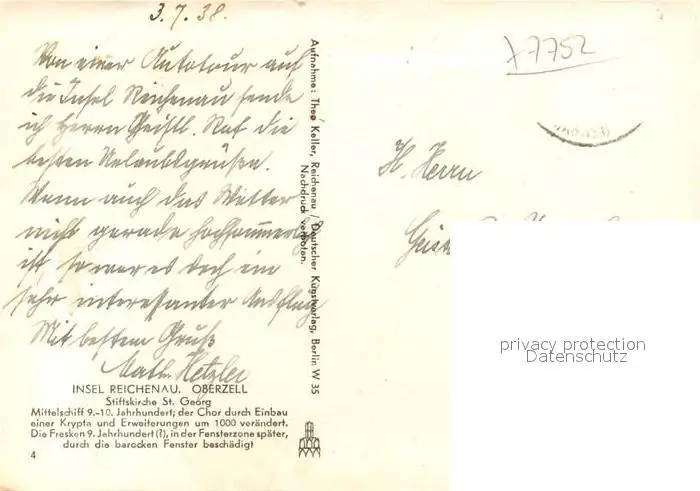 3.7.38.
Von einer Autotour auf
die Insel Reichenau sende
ich Herrn Geistl. Rat die
besten Urlaubsgrüße.
Wenn auch das Wetter
nicht gerade hochsommerlich
ist, so war es doch ein
sehr interessanter Ausflug
Mit bestem Gruß
Math. Hetzler
INSEL REICHENAU. OBERZELL
Stiftskirche St. Georg
Mittelschiff 9.-10. Jahrhundert; der Chor durch Einbau
einer Krypta und Erweiterungen um 1000 verändert.
Die Fresken 9. Jahrhundert (?), in der Fensterzone später,
durch die barocken Fenster beschädigt
4
Aufnahme: Theo Keller, Reichenau / Deutscher Kunstverlag, Berlin W 35
Nachdruck verboten.
x7752
H. Herrn
privacy protection
Datenschutz